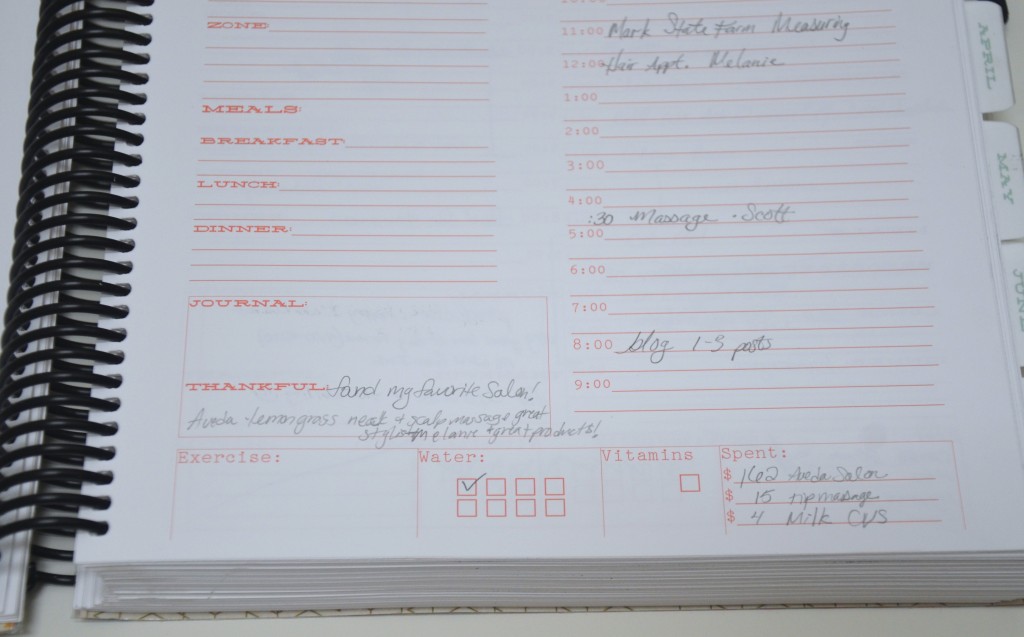 ZONE:
MEALS:
BREAKFAST:
LUNCH:
DINNER:
JOURNAL:
THANKFUL: found my favorite Salon!
Aveda - lemongrass neck + scalp massage great
stylist melanie + great products!
11:00 Mark State Farm Measuring
12:00 Hair Appt. Melanie
1:00
2:00
3:00
4:00
:30 Massage - Scott
5:00
6:00
7:00
8:00 blog 1-3 posts
9:00
Exercise:
Water:
Vitamins
Spent:
$ 162 Aveda Salon
$ 15 tip massage
$ 4 Milk CVS
APRIL
MAY
JUNE